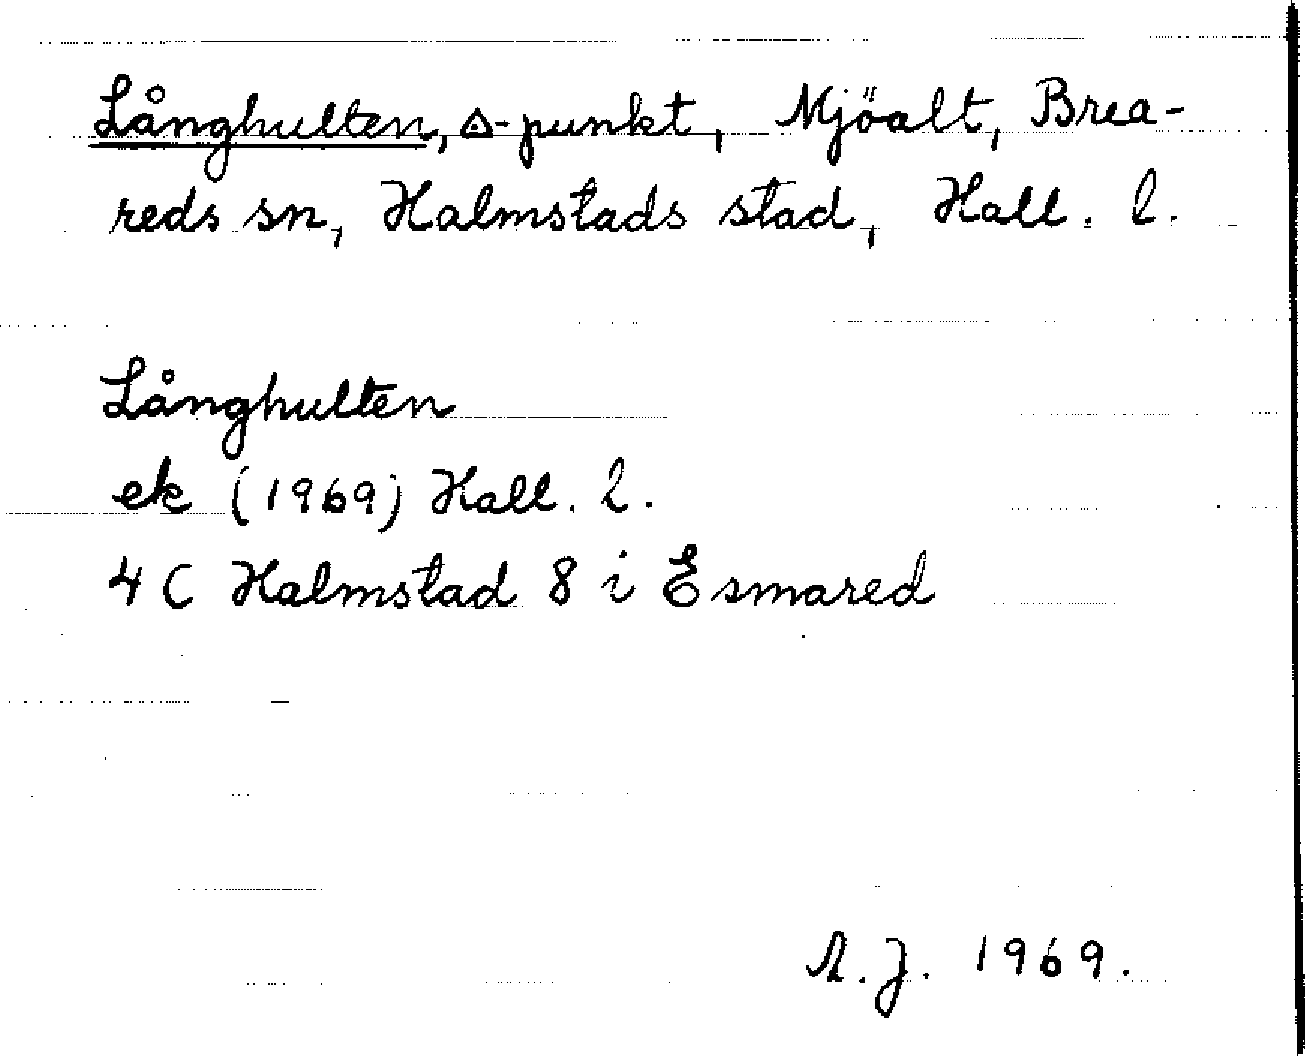 Långhulten, △-punkt, Mjöalt, Brea-
reds sn, Halmstads stad, Hall. l.
Långhulten
ek (1969) Hall. l.
4 C Halmstad 8 i Esmared
A.J. 1969.